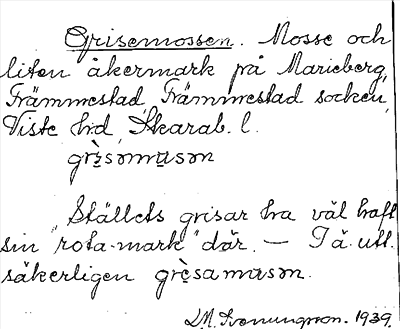 Grisemossen. Mosse och
liten åkermark på Marieberg,
Främmestad, Främmestad socken,
Viste hd, Skarab. l.
grèsəmɯsəm
Ställets grisar ha väl haft
sin "rota-mark" där. — I ä. utt.
säkerligen grèsamɯsəm.
1939.